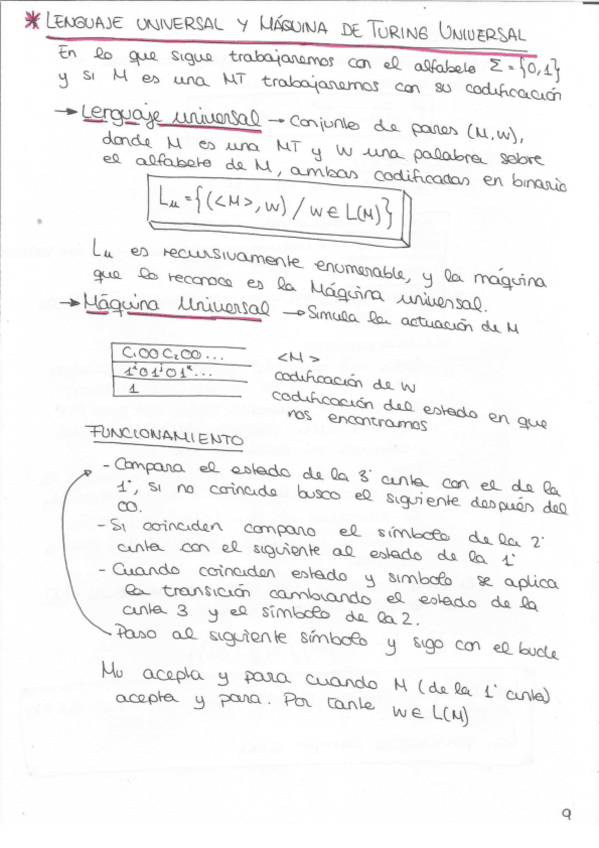 * LENGUAJE UNIVERSAL Y MÁQUINA DE TURING UNIVERSAL
En lo que sigue trabajaremos con el alfabeto Σ = {0,1}
y si M es una MT trabajaremos con su codificación
→ Lenguaje universal → Conjunto de pares (M,w),
donde M es una MT y w una palabra sobre
el alfabeto de M, ambas codificadas en binario
Lu = {(<M>, w) / w ∈ L(M)}
Lu es recursivamente enumerable, y la máquina
que lo reconoce es la Máquina universal.
→ Máquina Universal → Simula la actuación de M
C₁00C₂00... <M>
1ⁱ01ʲ01ᵏ... codificación de w
1 codificación del estado en que
nos encontramos
FUNCIONAMIENTO
- Compara el estado de la 3ª cinta con el de la
1ª, si no coincide busco el siguiente después del
00.
- Si coinciden comparo el símbolo de la 2ª
cinta con el siguiente al estado de la 1ª
- Cuando coinciden estado y simbolo se aplica
la transición cambiando el estado de la
cinta 3 y el símbolo de la 2.
- Paso al siguiente símbolo y sigo con el bucle
Mu acepta y para cuando M (de la 1ª cinta)
acepta y para. Por tanto w ∈ L(M)
9